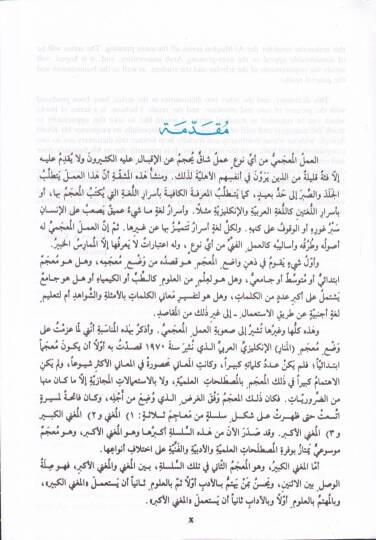 مُقَدِّمَة
العملُ المُعجَميُّ من أيِّ نوعٍ عملٌ شاقٌّ يُحجِمُ عن الإقبالِ عليه الكثيرونَ ولا يُقدِمُ عليهِ
إلّا فئةٌ قليلةٌ من الذين يَرَوْنَ في أنفسِهم الأهليّةَ لذلك. ومنشأُ هذه المشقّةِ أنَّ هذا العملَ يَتطلَّبُ
الجَلَدَ والصَّبْرَ إلى حَدٍّ بعيدٍ، كما يَتطلَّبُ المعرفةَ الكافيةَ بأسرارِ اللُّغةِ التي يُكتَبُ المُعجَمُ بها، أو
بأسرارِ اللُّغتَينِ كاللُّغةِ العربيّةِ والإنكليزيّةِ مثلاً. وأسرارُ لغةٍ ما شيءٌ عميقٌ يَصعبُ على الإنسانِ
سَبْرُ غَورِهِ أو الوقوفُ على كُنهِه. ولكلِّ لغةٍ أسرارٌ تتميَّزُ بها عن غيرِها. ثمَّ إنَّ العملَ المُعجَميَّ له
أصولُه وطُرُقُه وأساليبُه كالعملِ الفنيِّ من أيِّ نوعٍ، وله اعتباراتٌ لا يَعرفُها إلّا المُمارِسُ الخبيرُ.
وأوّلُ شيءٍ يقومُ في ذهنِ واضعِ المُعجَمِ هو قصدُه من وَضْعِ مُعجَمِه، وهل هو مُعجَمٌ
ابتدائيٌّ أو مُتوسِّطٌ أو جامعيٌّ، وهل هو لعِلْمٍ من العلومِ كالطِّبِّ أو الكيمياءِ أو هل هو جامعٌ
يَشتملُ على أكبرِ عددٍ من الكلماتِ، وهل هو لتفسيرِ مَعاني الكلماتِ بالأمثلةِ والشَّواهِدِ أم لتعليمِ
لغةٍ أجنبيّةٍ عن طريقِ الاستعمالِ ـ إلى غيرِ ذلك من المقاصدِ.
وهذه كلُّها وغيرُها تُشيرُ إلى صعوبةِ العملِ المُعجَميِّ. وأذكرُ بهذه المناسَبةِ أنّني لمّا عزمْتُ على
وَضْعِ مُعجَمِ (المنار) الإنكليزيِّ العربيِّ الذي نُشِرَ سنةَ ١٩٧٠ قصدْتُ به أوّلاً أن يكونَ مُعجَماً
ابتدائيّاً؛ فلم يَكُنْ عددُ كلماتِه كبيراً، وكانتِ المعاني محصورةً في المعاني الأكثرِ شيوعاً، ولم يَكُنِ
الاهتمامُ كبيراً في ذلك المُعجَمِ بالمُصطَلَحاتِ العلميّةِ، ولا بالاستعمالاتِ المَجازيّةِ إلّا ما كان منها
من الضَّروريّاتِ. فكان ذلك المُعجَمُ وَفْقَ الغرضِ الذي وُضِعَ من أجلِه، وكان فاتحةً لمسيرةٍ
اتَّسعتْ حتى ظهرتْ على شكلِ سلسلةٍ من مَعاجِمَ ثلاثةٍ: ١) المغني و٢) المغني الكبير
و٣) المغني الأكبر. وقد صَدَرَ الآنَ من هذه السِّلسلةِ أكبرُها وهو المغني الأكبر، وهو مُعجَمٌ
موسوعيٌّ يمتازُ بوفرةِ المصطَلَحاتِ العلميّةِ والأدبيّةِ والفنّيّةِ على اختلافِ أنواعِها.
أمّا المغني الكبيرُ، وهو المُعجَمُ الثّاني في تلك السِّلسلةِ، بين المغني والمغني الأكبرِ، فهو صِلةُ
الوصلِ بين الاثنينِ، ويَحسُنُ بمَنْ يهتمُّ بالآدابِ أوّلاً ثمّ بالعلومِ ثانياً أن يَستعملَ «المغني الكبير»،
وبالمهتمِّ بالعلومِ أوّلاً وبالآدابِ ثانياً أن يَستعملَ «المغني الأكبر».
x